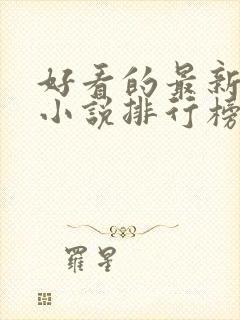 好看的最新
小说排行榜
羅星